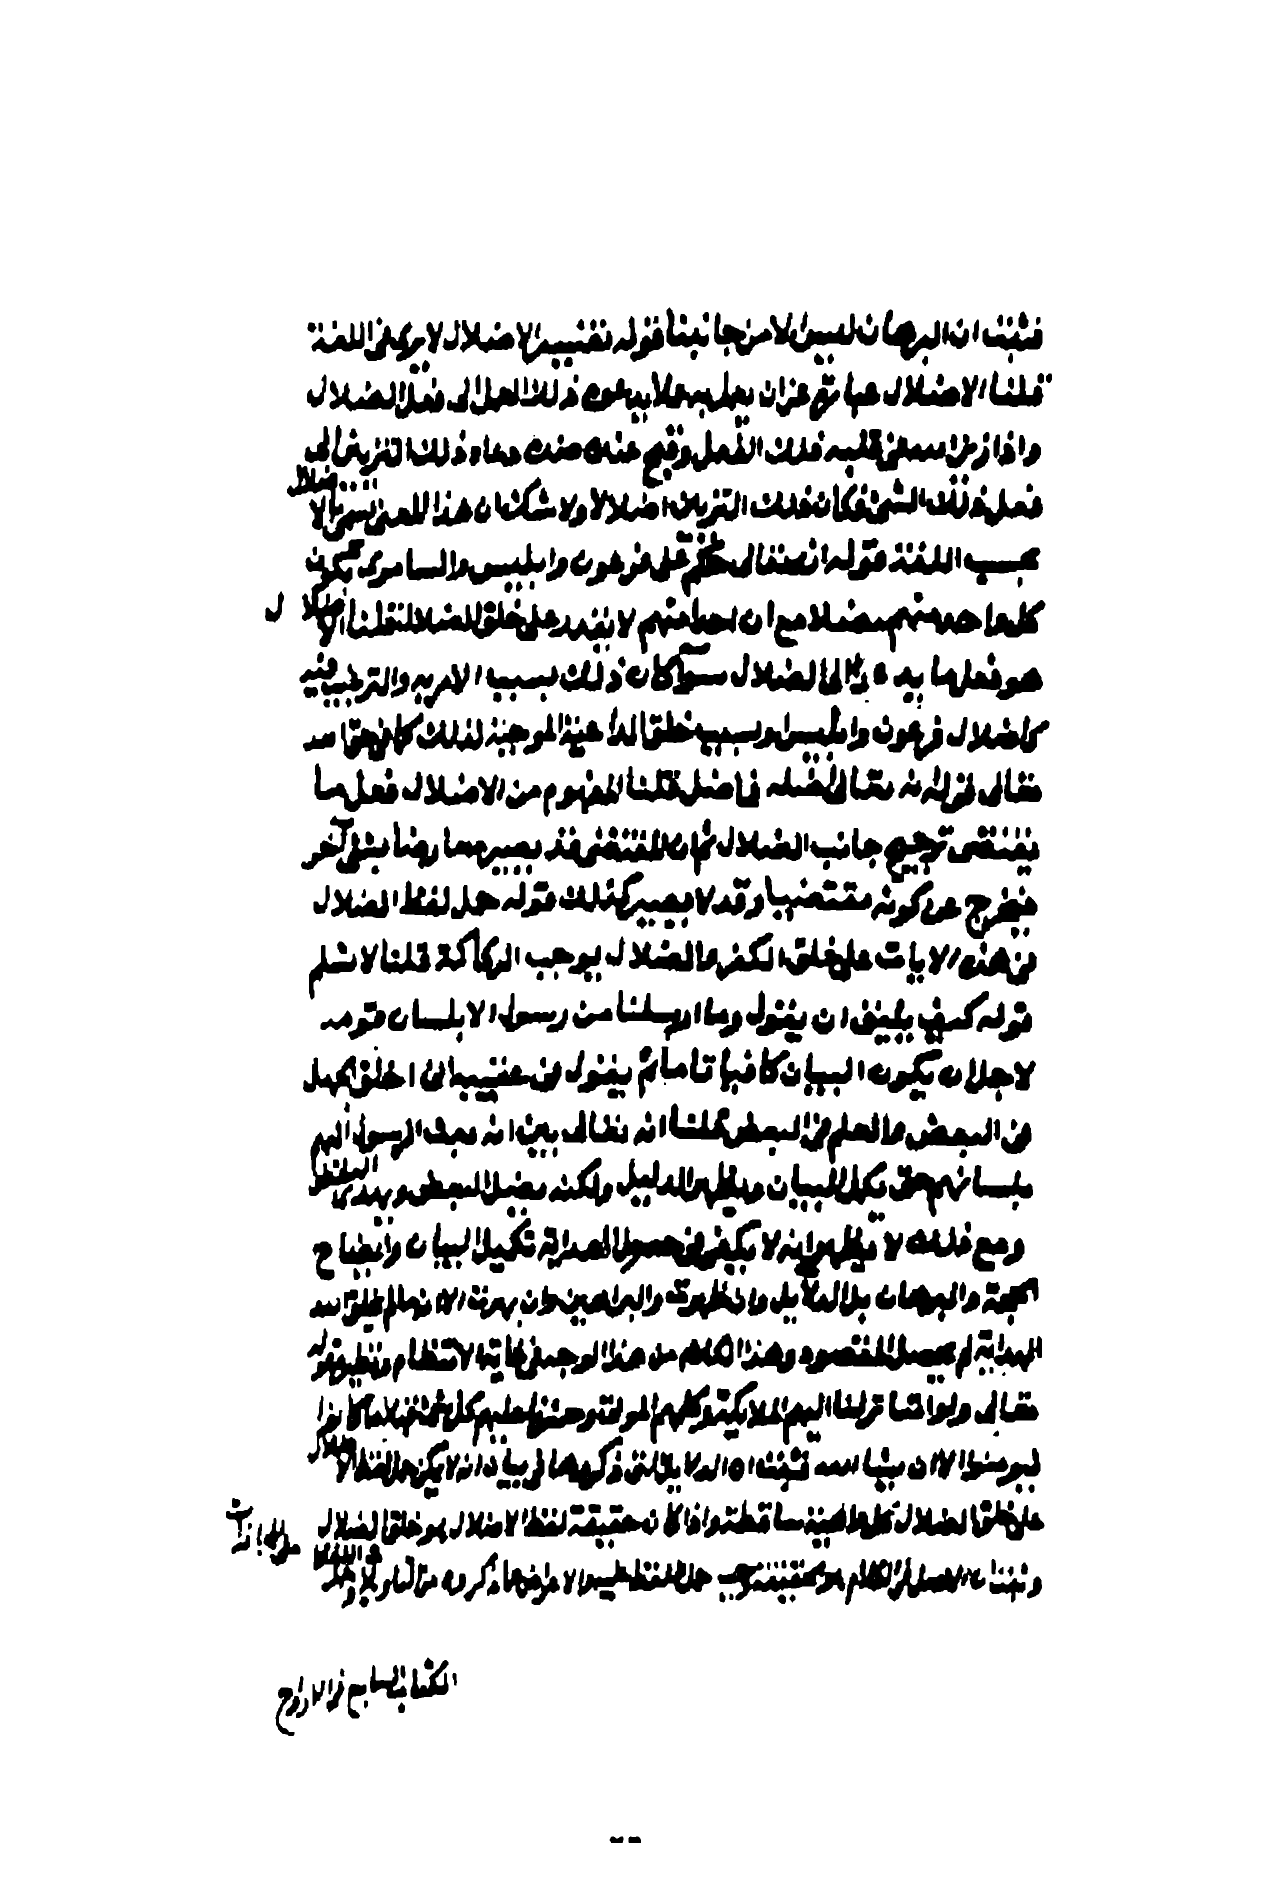 فثبت ان البرهان ليس الا من جانبنا قوله تفسير الاضلال لا يجرى في اللغة
قلنا الاضلال عبارة عن ان يعمل به عملا يدعوه ذلك العمل الى فعل الضلال
واذا زين معنى في قلبه ذلك الفعل وقبح عنده ضده دعاه ذلك التزيين الى
فعل ذلك الشئ فكان ذلك التزيين اضلالا ولا شك ان هذا المعنى يسمى
بحسب اللغة قوله انه تعالى حكم على فرعون وابليس والسامرى بكون
كل واحد منهم مضلا مع ان احدا منهم لا يقدر على خلق الضلال قلنا
هو فعل ما يدعو الى الضلال سواء كان ذلك بسبب الامر به والترغيب فيه
كاضلال فرعون وابليس او بسبب خلق الداعية الموجبة لذلك كما في حق الله
تعالى قوله انه تعالى اضله فما ضل قلنا المفهوم من الاضلال فعل ما
يقتضى ترجيح جانب الضلال ثم ان المقتضى قد يصير معارضا بشئ آخر
فيخرج عن كونه مقتضيا وقد لا يصير كذلك قوله حمل لفظ الضلال
في هذه الايات على خلق الكفر والضلال يوجب الركاكة قلنا لا نسلم
قوله كيف يليق ان يقول وما ارسلنا من رسول الا بلسان قومه
لاجل ان يكون البيان كافيا تاما ثم يقول في عقيبه انى اخلق الجهل
في البعض والعلم في البعض قلنا انه تعالى بين انه بعث الرسول اليهم
بلسانهم حتى يكمل البيان ويظهر الدليل ولكنه يضل البعض ويهدى
ومع ذلك لا يظهر انه لا يكفى في حصول الهداية تكميل البيان وايضاح
الحجة والبرهان بل الدلايل وان ظهرت والبراهين وان بهرت الا انه ما لم يخلق الله
الهداية لم يحصل المقصود وهذا الكلام من هذا الوجه في غاية الانتظام ونظيره قوله
تعالى ولو اننا نزلنا اليهم الملايكة وكلمهم الموتى وحشرنا عليهم كل شئ قبلا ما كانوا
ليومنوا الا ان يشا الله فثبت ان الدلايل التى ذكروها في بيان انه لا يمكن حمل لفظ الاضلال
على خلق الضلال كلها واهية ساقطة واذا كان حقيقة لفظ الاضلال هو خلق الضلال
وثبت ان الاصل في الكلام هو الحقيقة وجب حمل اللفظ عليه والاعراض عما ذكروه من التاويلات
الكتاب السابع في الارواح